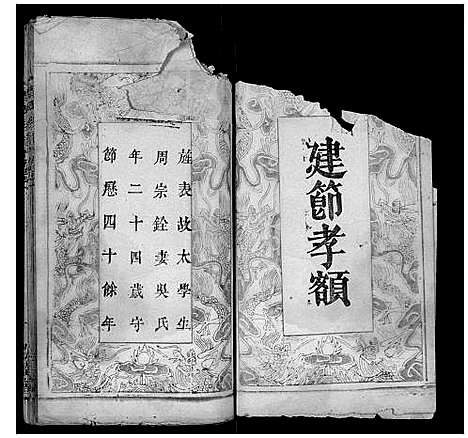 建節孝額
旌表故太學生
周宗銓妻吳氏
年二十四歲守
節歷四十餘年